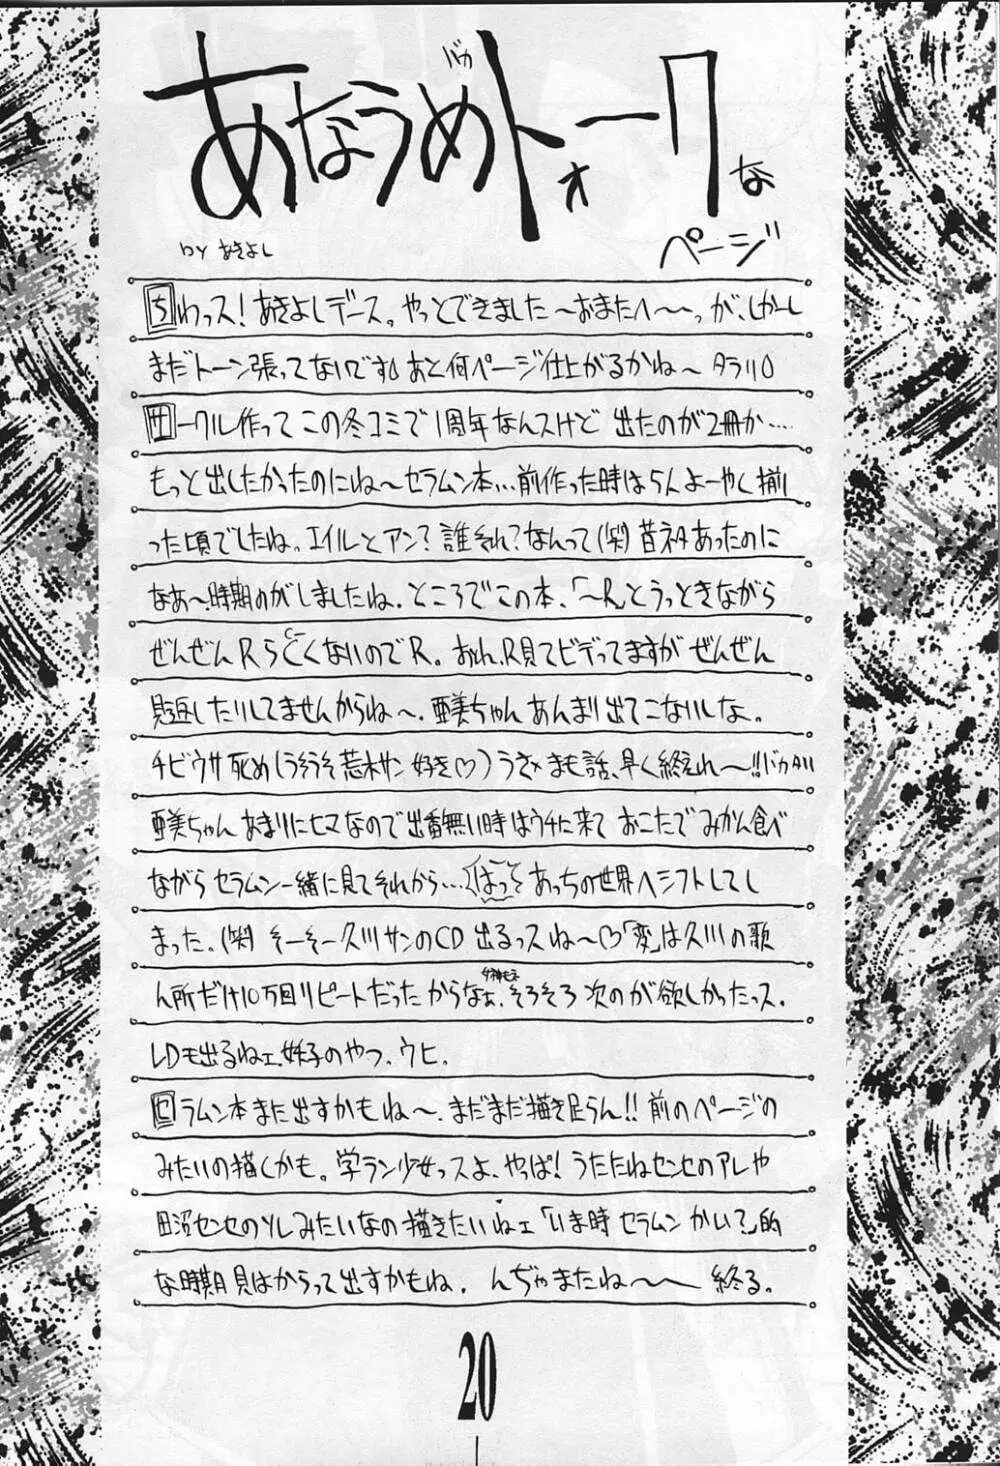 あなうめバカトォークな
ページ
by あきよし
ちわっス！あきよしデース。やっとできました〜おまたへ〜〜っが、しかーし
まだトーン張ってないです あと何ページ仕上がるかね〜 タラリ
サークル作って この冬コミで1周年なんスけど 出たのが2冊か…
もっと出したかったのにね〜セラムン本…前作った時は5人よーやく揃
った頃でしたね。エイルとアン？誰それ？なんって(笑) 昔ネタあったのに
なあ〜、時期のがしましたね。ところでこの本、「〜R」とうっときながら
ぜんぜんRらしくないのでR。おれ、R見てビデってますが ぜんぜん
見返したりしてませんからね〜。亜美ちゃん あんまり出てこないしな。
チビウサ 死め(うそうそ 荒木サン 好き♡) うさ まも話、早く終えれ〜!!バカタリ
亜美ちゃん あまりにヒマなので出番無い時はウチに来て おこたでみかん食べ
ながら セラムン一緒に見てそれから… はっ あっちの世界へシフトしてし
まった。(笑) そーそー久川サンのCD 出るっスね〜♡「変」は久川の歌
ん所だけ10万回リピートだった からなぁ、そろそろ 次のが欲しかったっス。
LDも出るねェ、妖子のやつ、ウヒ。
セラムン本また出すかもね〜。まだまだ描き足らん!! 前のページの
みたいの描くかも。学ラン少女っスよ、やっぱ！うたたねセンセのアレや
田沼センセのソレみたいなの 描きたいねェ「いま時 セラムン かい？」的
な時期 見はからって出すかもね。 んぢゃまたね〜〜 終る。
20